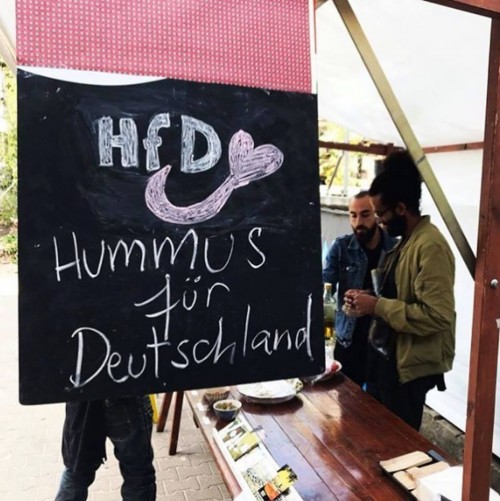 HfD
Hummus
für
Deutschland